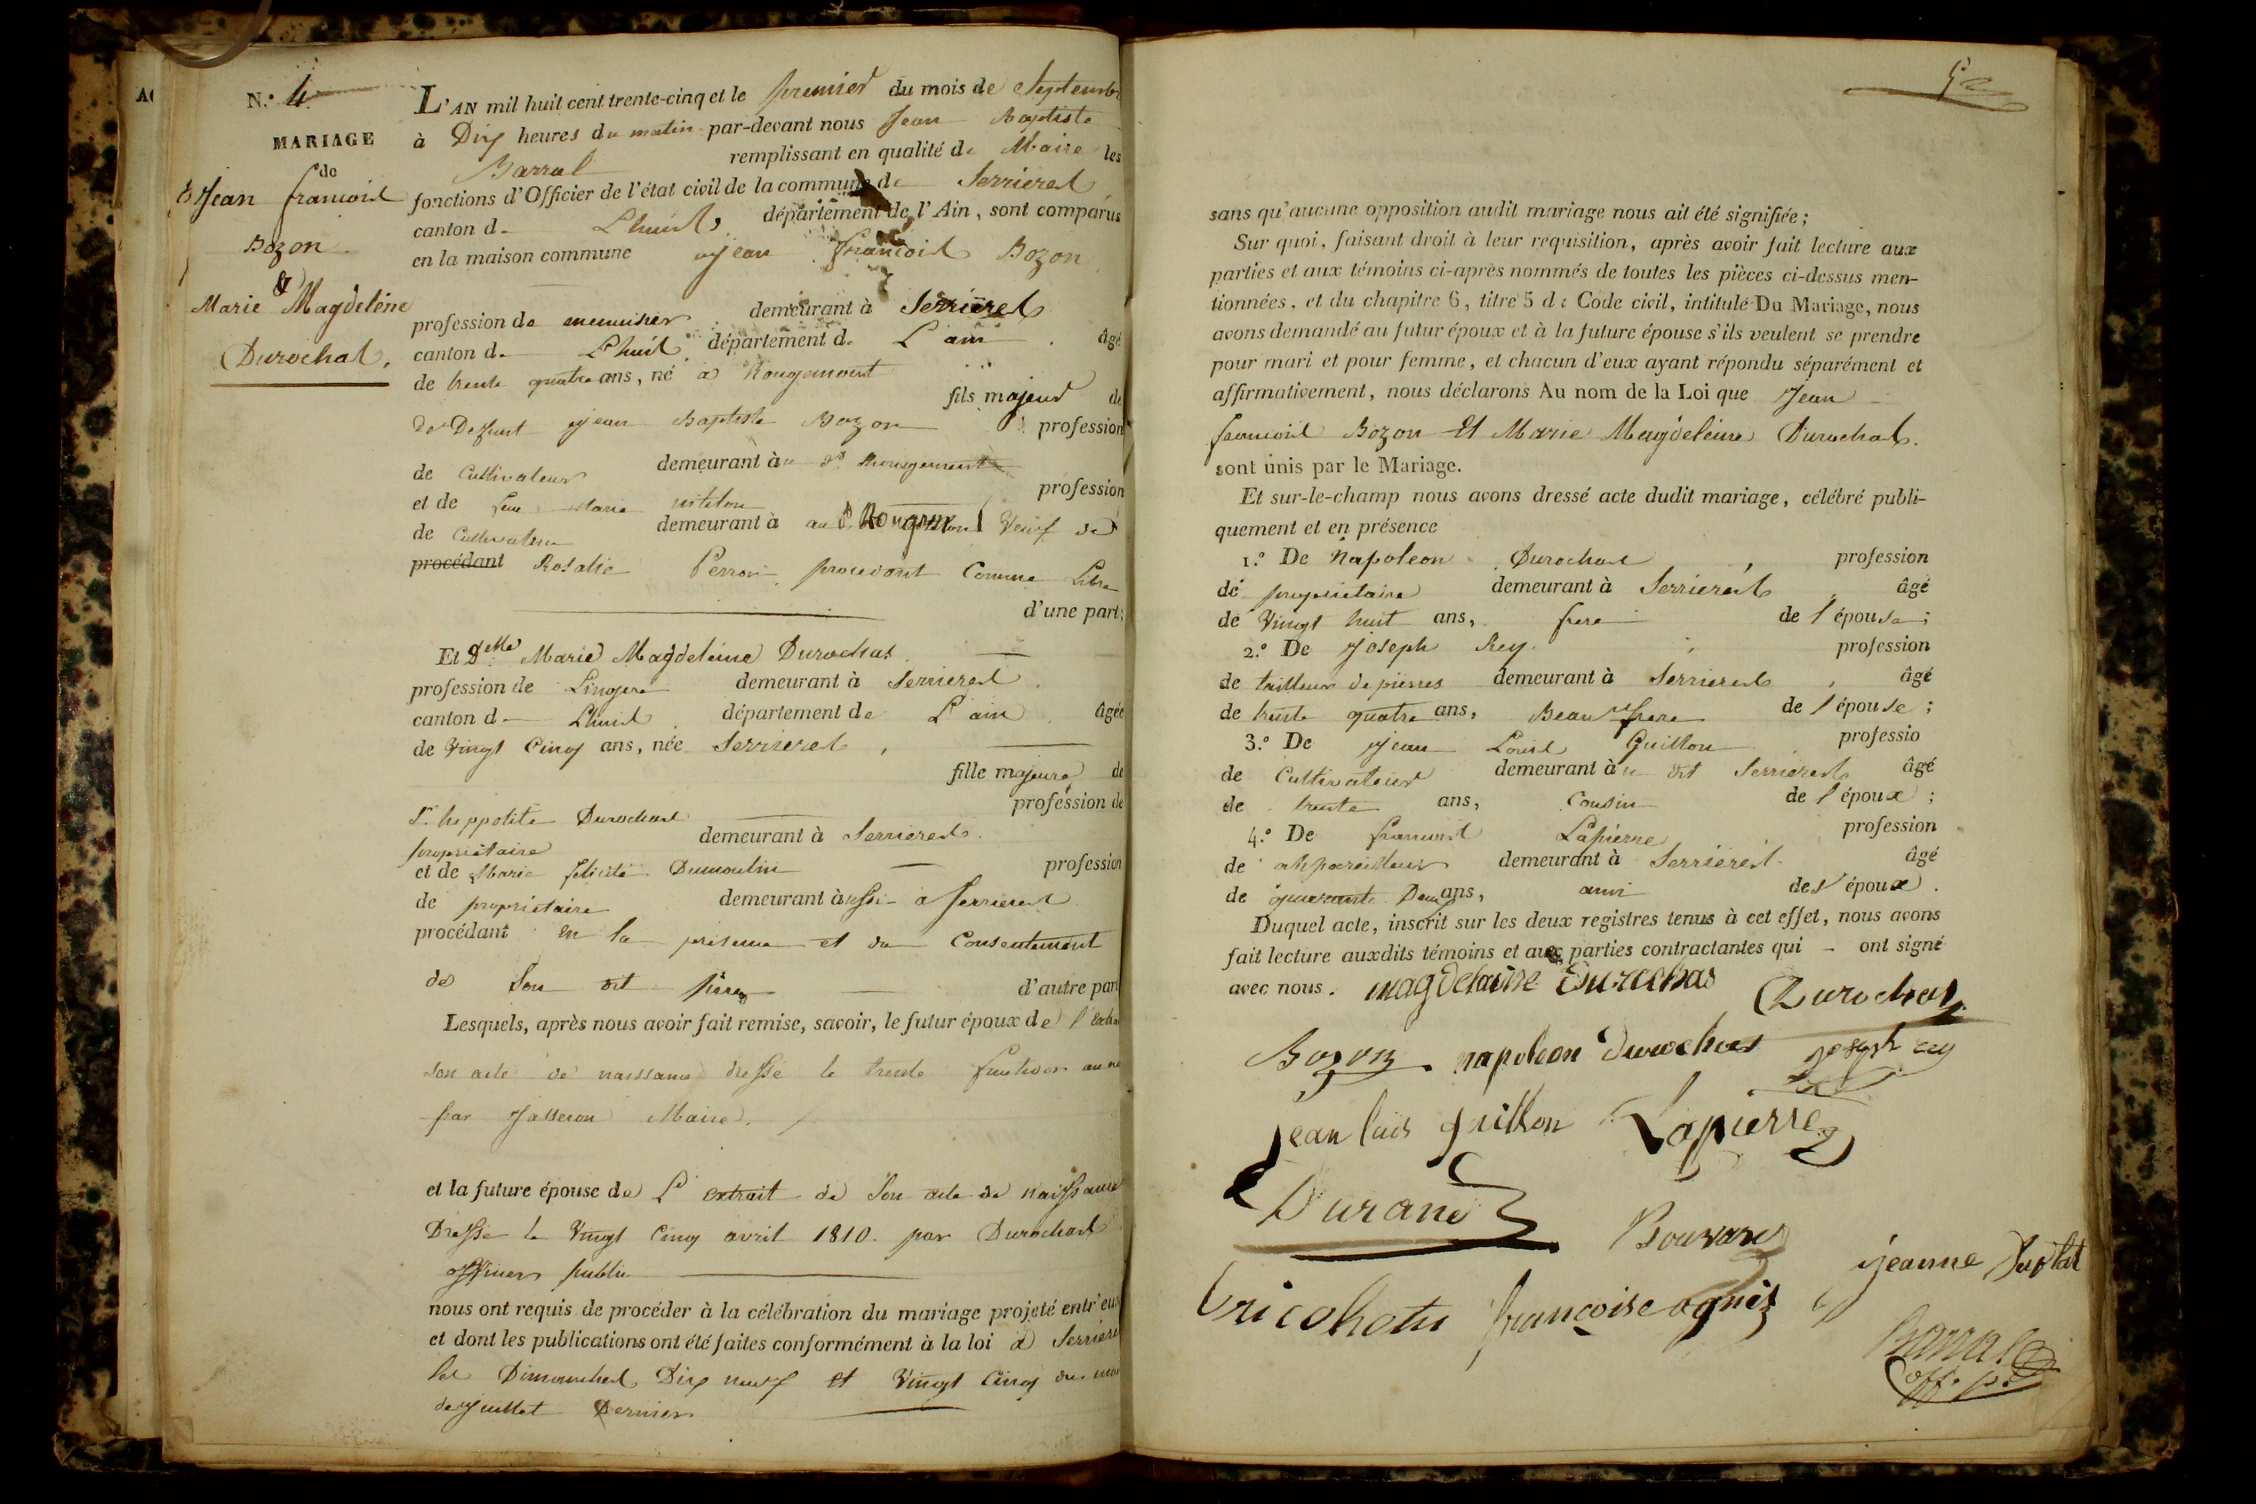 N.º 4
MARIAGE
de
Jean francois
Bozon
&
Marie Magdeleine
Durochat.
L'AN mil huit cent trente-cinq et le premier du mois de Septembre
à Dix heures du matin par-devant nous Jean Baptiste
Barral remplissant en qualité de Maire les
fonctions d'Officier de l'état civil de la commune de Serrieres
canton d- Lhuis, département de l'Ain, sont comparus
en la maison commune Jean francois Bozon
profession de menuisier demeurant à Serrieres
canton d- Lhuis département de L'ain âgé
de trente quatre ans, né à Rougemont
fils majeur de
de Defunt Jean Baptiste Bozon profession
de Cultivateur demeurant au dt Rougemont
et de feue Marie profession
de Cultivateur demeurant à au dt Rougemont Veuf de
procédant Rosalie Perron procedant Comme Libre
d'une part;
Et Delle Marie Magdeleine Durochat
profession de Lingere demeurant à Serrieres
canton d- Lhuis département de L'ain âgée
de Vingt Cinq ans, née Serrieres,
fille majeure de
Sr hippolite Durochat profession de
propriétaire demeurant à Serrieres
et de Marie felicité Dumoulin profession
de propriétaire demeurant aussi à Serrieres
procédant en la présence et du Consentement
de Son dit père d'autre part
Lesquels, après nous avoir fait remise, savoir, le futur époux de l'
son acte de naissance dressé le trente fructidor
par Maire.
et la future épouse de L'extrait de Son acte de naissance
Dressé le Vingt Cinq avril 1810. par Durochat
officier public
nous ont requis de procéder à la célébration du mariage projeté entr'eux
et dont les publications ont été faites conformément à la loi à Serrieres
les Dimanches Dix neuf et Vingt Cinq du mois
de juillet Dernier
sans qu'aucune opposition audit mariage nous ait été signifiée;
Sur quoi, faisant droit à leur requisition, après avoir fait lecture aux
parties et aux témoins ci-après nommés de toutes les pièces ci-dessus men-
tionnées, et du chapitre 6, titre 5 du Code civil, intitulé Du Mariage, nous
avons demandé au futur époux et à la future épouse s'ils veulent se prendre
pour mari et pour femme, et chacun d'eux ayant répondu séparément et
affirmativement, nous déclarons Au nom de la Loi que Jean
francois Bozon Et Marie Magdeleine Durochat.
sont unis par le Mariage.
Et sur-le-champ nous avons dressé acte dudit mariage, célébré publi-
quement et en présence
1.º De Napoleon Durochat, profession
de propriétaire demeurant à Serrieres, âgé
de Vingt huit ans, frere de l'épouse;
2.º De Joseph Rey. profession
de tailleur de pierres demeurant à Serrieres, âgé
de trente quatre ans, Beau frere de l'épouse;
3.º De Jean Louis Guillon professio
de Cultivateur demeurant au dit Serrieres âgé
de trente ans, Cousin de l'époux;
4.º De francois Lapierre profession
de demeurant à Serrieres âgé
de quarante Deux ans, ami de l'époux.
Duquel acte, inscrit sur les deux registres tenus à cet effet, nous avons
fait lecture auxdits témoins et aux parties contractantes qui - ont signé
avec nous. magdelaine Durochas Durochat
Bozon napoleon durochat joseph rey
jean luis guillon Lapierre
Durand
Bouvard
jeanne
françoise agnès
Barral
off. p.